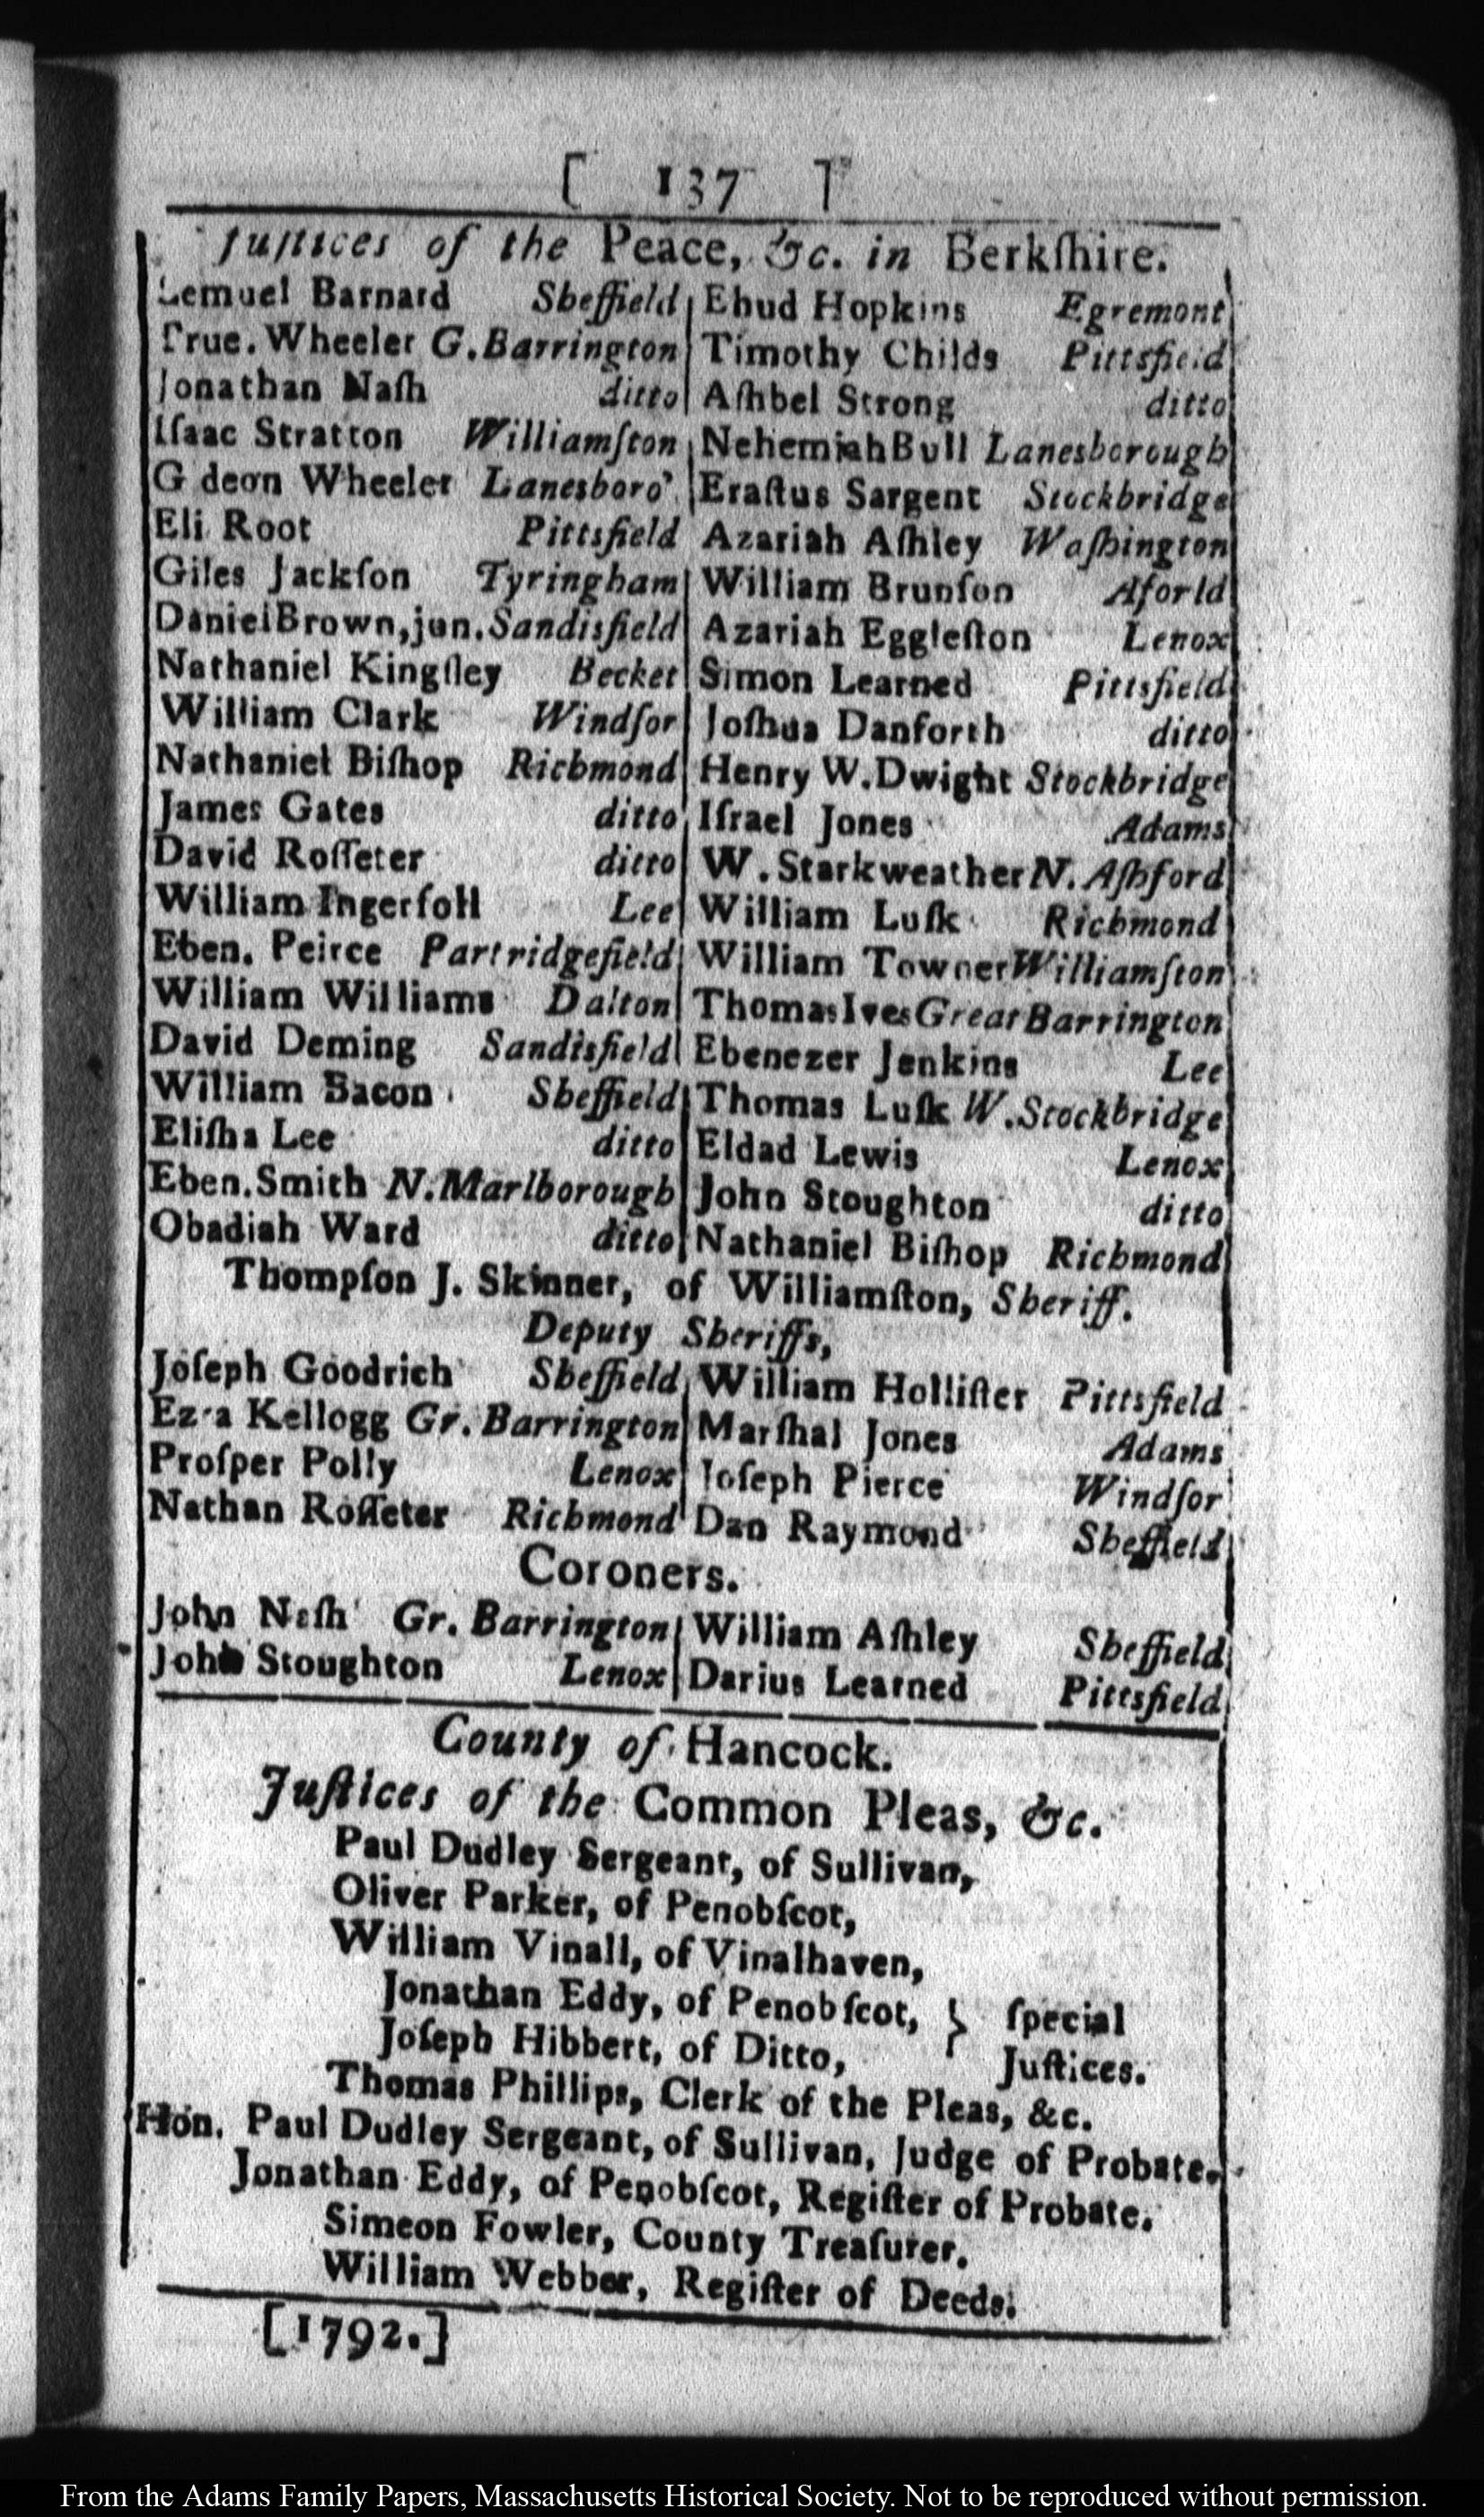 [ 137 ]
Juſtices of the Peace, &c. in Berkſhire.
Lemuel Barnard Sheffield
True. Wheeler G. Barrington
Jonathan Naſh ditto
Iſaac Stratton Williamſton
G deon Wheeler Lanesboro'
Eli Root Pittsfield
Giles Jackſon Tyringham
Daniel Brown, jun. Sandisfield
Nathaniel Kingſley Becket
William Clark Windſor
Nathaniel Biſhop Richmond
James Gates ditto
David Roſſeter ditto
William Ingerſoll Lee
Eben. Peirce Partridgefield
William Williams Dalton
David Deming Sandisfield
William Bacon Sheffield
Eliſha Lee ditto
Eben. Smith N. Marlborough
Obadiah Ward ditto
Ehud Hopkins Egremont
Timothy Childs Pittsfield
Aſhbel Strong ditto
Nehemiah Bull Lanesborough
Eraſtus Sargent Stockbridge
Azariah Aſhley Waſhington
William Brunſon Aforld
Azariah Eggleſton Lenox
Simon Learned Pittsfield
Joſhua Danforth ditto
Henry W. Dwight Stockbridge
Iſrael Jones Adams
W. Starkweather N. Aſhford
William Luſk Richmond
William Towner Williamſton
Thomas Ives Great Barrington
Ebenezer Jenkins Lee
Thomas Luſk W. Stockbridge
Eldad Lewis Lenox
John Stoughton ditto
Nathaniel Biſhop Richmond
Thompſon J. Skinner, of Williamſton, Sheriff.
Deputy Sheriffs,
Joſeph Goodrich Sheffield
Ezra Kellogg Gr. Barrington
Proſper Polly Lenox
Nathan Roſſeter Richmond
William Holliſter Pittsfield
Marſhal Jones Adams
Joſeph Pierce Windſor
Dan Raymond Sheffield
Coroners.
John Naſh Gr. Barrington
John Stoughton Lenox
William Aſhley Sheffield
Darius Learned Pittsfield
County of Hancock.
Juſtices of the Common Pleas, &c.
Paul Dudley Sergeant, of Sullivan,
Oliver Parker, of Penobſcot,
William Vinall, of Vinalhaven,
Jonathan Eddy, of Penobſcot, } ſpecial
Joſeph Hibbert, of Ditto, Juſtices.
Thomas Phillips, Clerk of the Pleas, &c.
Hon. Paul Dudley Sergeant, of Sullivan, Judge of Probate.
Jonathan Eddy, of Penobſcot, Regiſter of Probate.
Simeon Fowler, County Treaſurer.
William Webber, Regiſter of Deeds.
[1792.]
From the Adams Family Papers, Massachusetts Historical Society. Not to be reproduced without permission.